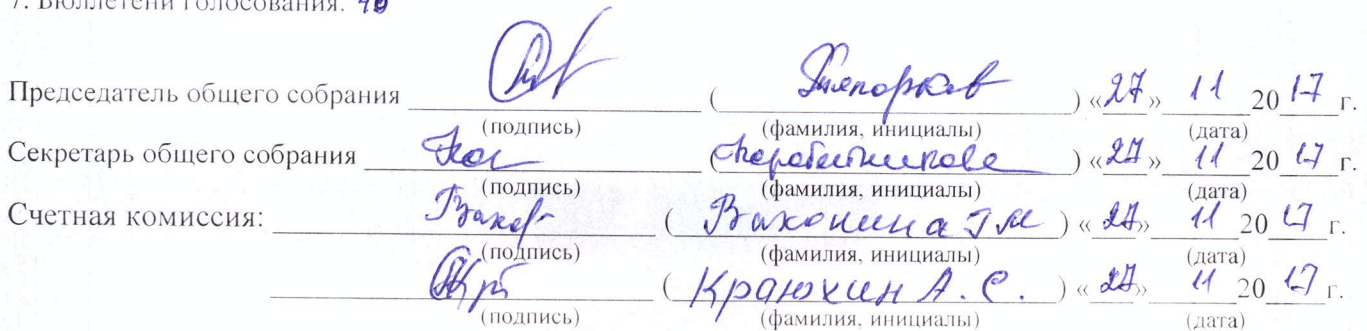 7. Бюллетени голосования.
Председатель общего собрания ( ) «27» 11 20 17 г.
(подпись) (фамилия, инициалы) (дата)
Секретарь общего собрания ( ) «27» 11 20 17 г.
(подпись) (фамилия, инициалы) (дата)
Счетная комиссия: ( Вахонина ГМ ) «27» 11 20 17 г.
(подпись) (фамилия, инициалы) (дата)
( Краюхин А. С. ) «27» 11 20 17 г.
(подпись) (фамилия, инициалы) (дата)